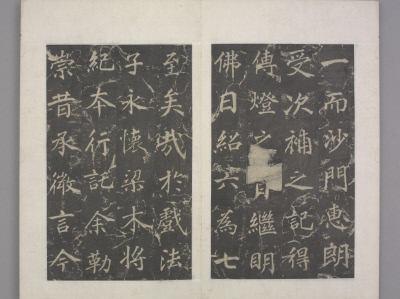 一而沙門惠朗
受次補之記得
傳燈之日繼明
佛日紹六為七
至矣哉於戲法
子永懷梁木將
紀本行託余勒
崇昔承微言今